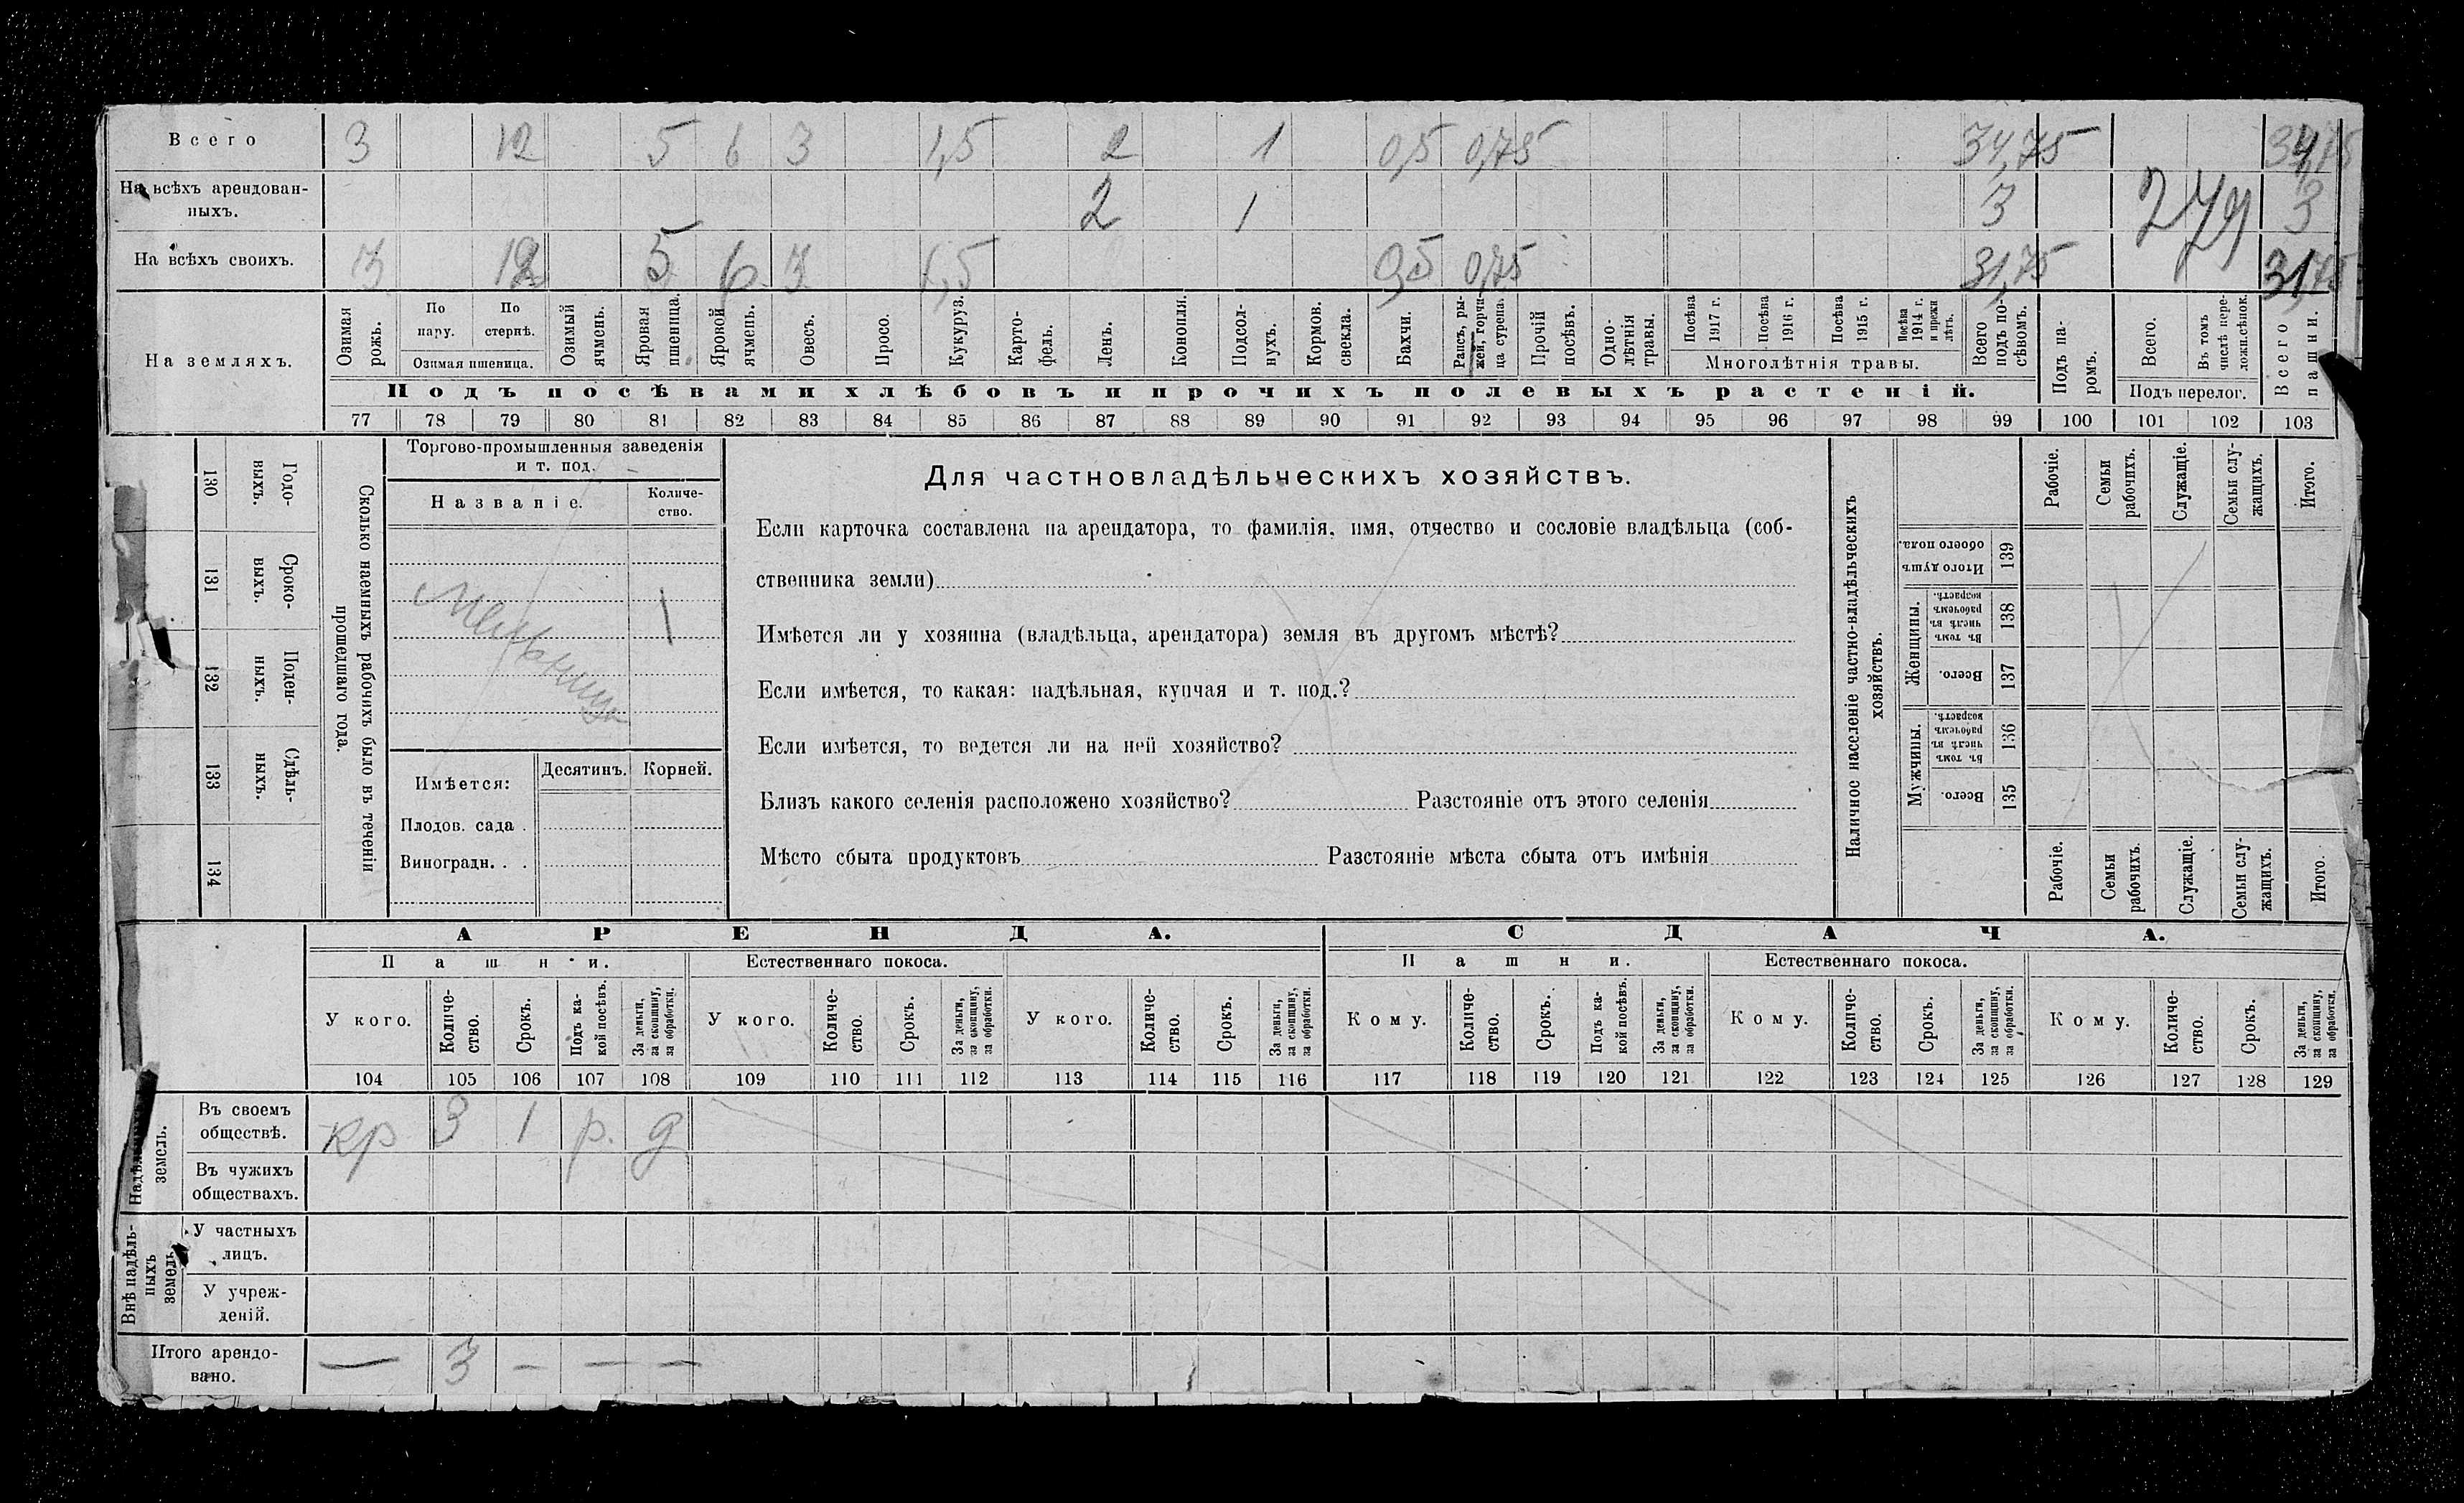 Всего 3 12 5 6 3 1,5 2 1 0,5 0,75 34,75 34,75
На всѣхъ арендован-
ныхъ. 2 1 3 279 3
На всѣхъ своихъ. 3 12 5 6 3 1,5 0,5 0,75 31,75 31,75
На земляхъ.
Озимая рожь.
По пару.
По стернѣ.
Озимая пшеница.
Озимый ячмень.
Яровая пшеница.
Яровой ячмень.
Овесъ.
Просо.
Кукуруз.
Карто-
фель.
Ленъ.
Конопля.
Подсол-
нухъ.
Кормов. свекла.
Бахчи.
Рапсъ, ры-
жей, горчи-
ца сурепа.
Прочій посѣвъ.
Одно-
лѣтнія травы.
Посѣва 1917 г.
Посѣва 1916 г.
Посѣва 1915 г.
Посѣва 1914 г. и прежн лѣтъ.
Многолѣтнія травы.
Всего подъ по-
сѣвомъ.
Подъ па-
ромъ.
Всего.
Въ томъ числѣ пере-
ложн.сѣнок.
Подъ перелог.
Всего пашни.
Подъ посѣвами хлѣбовъ и прочихъ полевыхъ растеній.
77 78 79 80 81 82 83 84 85 86 87 88 89 90 91 92 93 94 95 96 97 98 99 100 101 102 103
130 Годо-
выхъ.
131 Сроко-
выхъ.
132 Поден-
ныхъ.
133 Сдѣль-
ныхъ.
134
Сколько наемныхъ рабочихъ было въ теченіи
прошедшаго года.
Торгово-промышленныя заведенія
и т. под.
Названіе.
Количе-
ство.
Мельница 1
Имѣется: Десятинъ. Корней.
Плодов. сада .
Виноградн. . .
Для частновладѣльческихъ хозяйствъ.
Если карточка составлена на арендатора, то фамилія, имя, отчество и сословіе владѣльца (соб-
ственника земли)
Имѣется ли у хозяина (владѣльца, арендатора) земля въ другомъ мѣстѣ?
Если имѣется, то какая: надѣльная, купчая и т. под.?
Если имѣется, то ведется ли на ней хозяйство?
Близъ какого селенія расположено хозяйство? Разстояніе отъ этого селенія
Мѣсто сбыта продуктовъ Разстояніе мѣста сбыта отъ имѣнія
Наличное населеніе частно-владѣльческихъ
хозяйствъ.
Рабочіе.
Семьи рабочихъ.
Служащіе.
Семьи слу-
жащихъ.
Итого.
Итого душъ обоего пола. 139
Женщины.
Въ томъ числѣ въ рабочемъ возрастѣ. 138
Всего. 137
Мужчины.
Въ томъ числѣ въ рабочемъ возрастѣ. 136
Всего. 135
Рабочіе.
Семьи рабочихъ.
Служащіе.
Семьи слу-
жащихъ.
Итого.
АРЕНДА. СДАЧА.
Пашни. Естественнаго покоса. Пашни. Естественнаго покоса.
У кого. Количе-
ство. Срокъ. Подъ ка-
кой посѣвъ. За деньги, за скопщину, за обработки.
У кого. Количе-
ство. Срокъ. За деньги, за скопщину, за обработки.
У кого. Количе-
ство. Срокъ. За деньги, за скопщину, за обработки.
Кому. Количе-
ство. Срокъ. Подъ ка-
кой посѣвъ. За деньги, за скопщину, за обработки.
Кому. Количе-
ство. Срокъ. За деньги, за скопщину, за обработки.
Кому. Количе-
ство. Срокъ. За деньги, за скопщину, за обработки.
104 105 106 107 108 109 110 111 112 113 114 115 116 117 118 119 120 121 122 123 124 125 126 127 128 129
земель.
Въ своемъ
обществѣ. кр 3 1 р. д
Въ чужихъ
обществахъ.
Внѣ надѣль-
ныхъ
земель
У частныхъ
лицъ.
У учреж-
деній.
Итого арендо-
вано. — 3 — — —